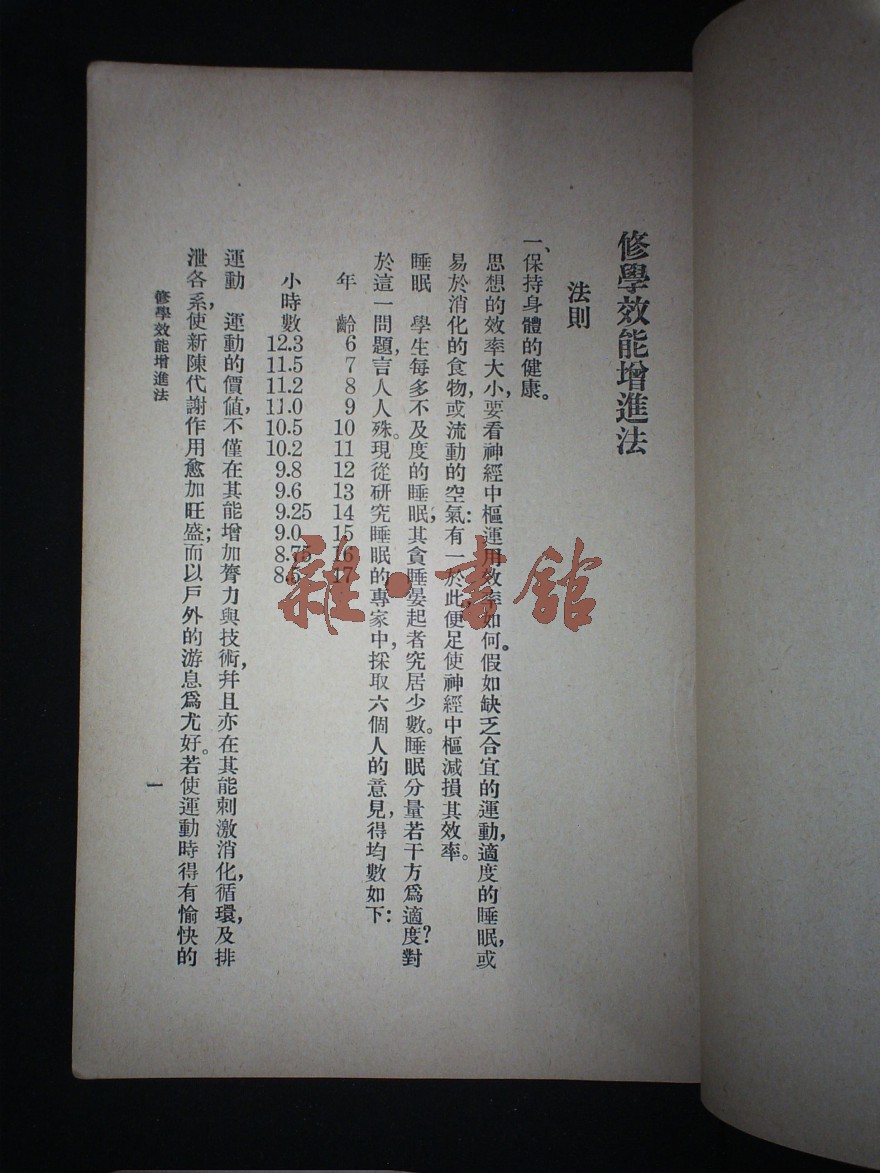 修學效能增進法
法則
一、保持身體的健康。
思想的效率大小,要看神經中樞運用效率如何。假如缺乏合宜的運動,適度的睡眠,或
易於消化的食物,或流動的空氣:有一於此,便足使神經中樞減損其效率。
睡眠 學生每多不及度的睡眠,其貪睡晏起者究居少數。睡眠分量若干方爲適度?對
於這一問題,言人人殊。現從研究睡眠的專家中,採取六個人的意見,得均數如下:
年 齡 6 7 8 9 10 11 12 13 14 15 16 17
小時數 12.3 11.5 11.2 11.0 10.5 10.2 9.8 9.6 9.25 9.0 8.75 8.5
運動 運動的價值,不僅在其能增加膂力與技術,幷且亦在其能刺激消化,循環,及排
泄各系,使新陳代謝作用愈加旺盛;而以戶外的游息爲尤好。若使運動時得有愉快的
修學效能增進法
一
雜·書館